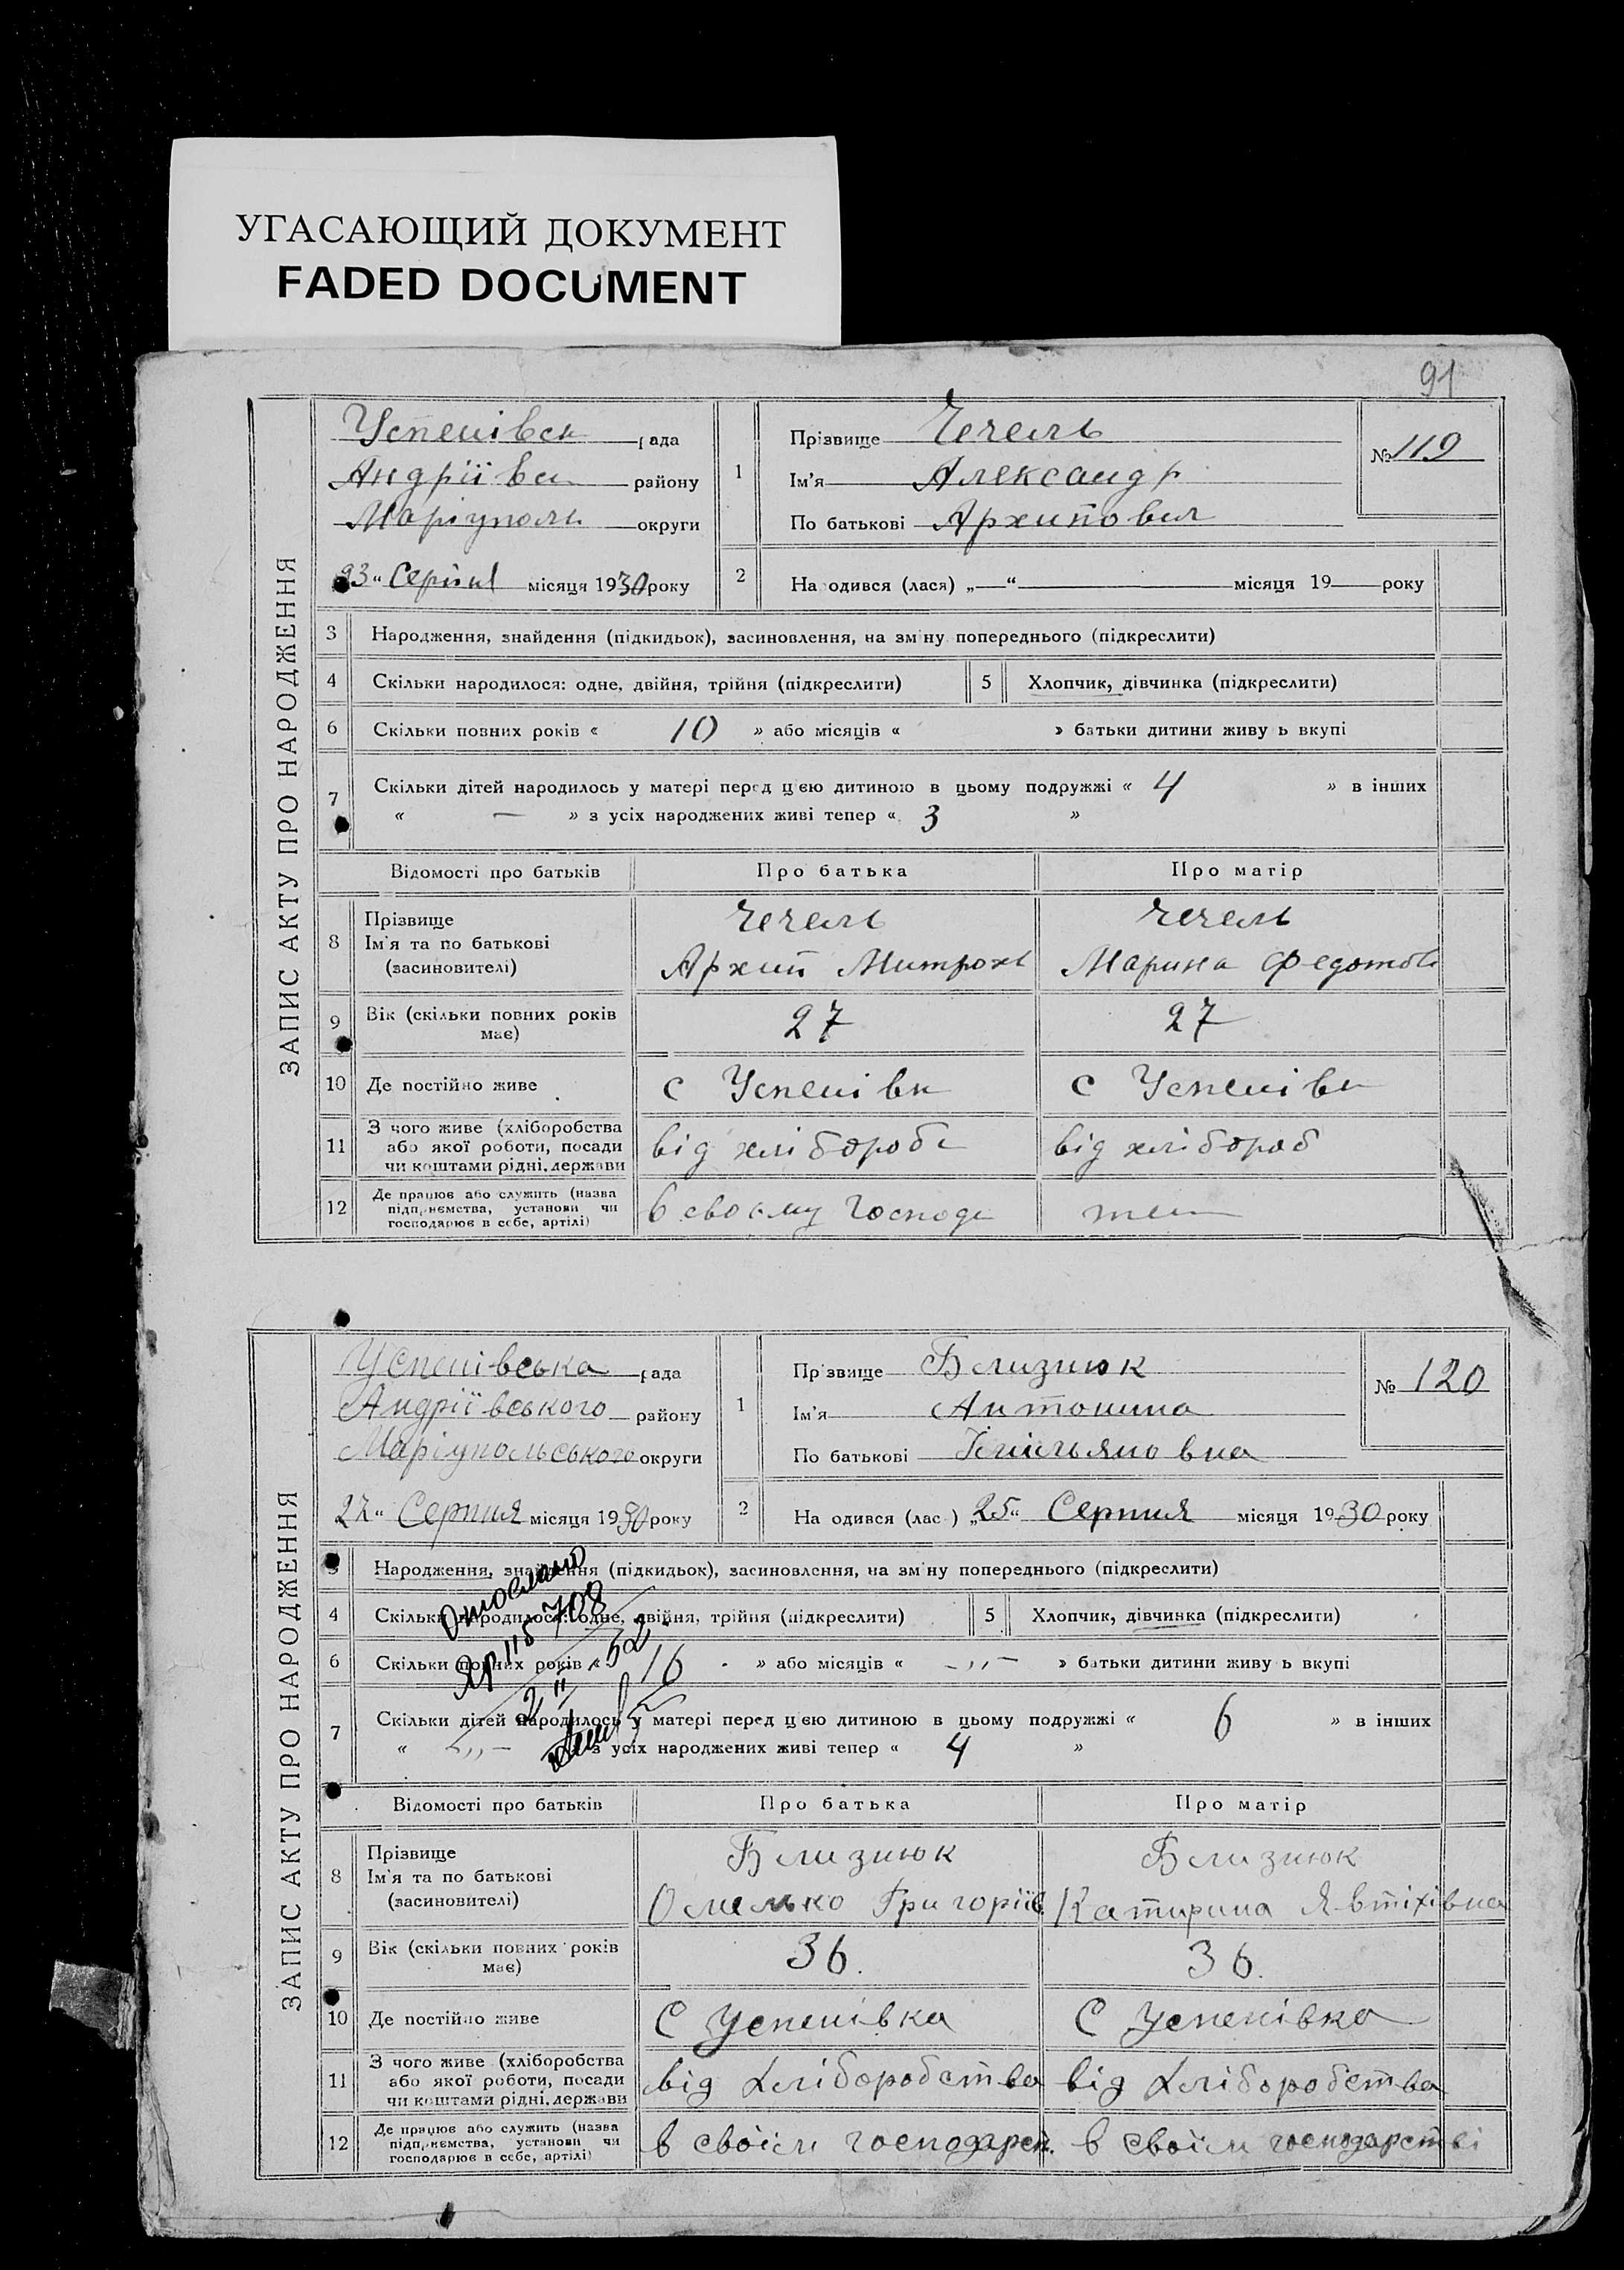 УГАСАЮЩИЙ ДОКУМЕНТ
FADED DOCUMENT
91
ЗАПИС АКТУ ПРО НАРОДЖЕННЯ
Успенівськ рада
Андріївсь району
Маріуполь округи
23 „ Серпня місяця 1930 року
1
Прізвище Чечель
Ім'я Александр
По батькові Архипович
№ 119
2
Народився (лася) „—“ місяця 19 року
3 Народження, знайдення (підкидьок), засиновлення, на зміну попереднього (підкреслити)
4 Скільки народилося: одне, двійня, трійня (підкреслити)
5 Хлопчик, дівчинка (підкреслити)
6 Скільки повних років « 10 » або місяців « » батьки дитини живуть вкупі
7 Скільки дітей народилось у матері перед цією дитиною в цьому подружжі « 4 » в інших
« — » з усіх народжених живі тепер « 3 »
Відомості про батьків Про батька Про матір
8 Прізвище Чечель Чечель
Ім'я та по батькові
(засиновителі) Архип Митроф Марина Федотов
9 Вік (скільки повних років має) 27 27
10 Де постійно живе с Успенівк с Успенівк
11 З чого живе (хліборобства
або якої роботи, посади від хліборобс від хлібороб
чи коштами рідні, держави
12 Де працює або служить (назва
підприємства, установи чи в своєму господ
господарює в себе, артілі)
ЗАПИС АКТУ ПРО НАРОДЖЕННЯ
Успенівська рада
Андріївського району
Маріупольського округи
27 „ Серпня місяця 1930 року
1
Прізвище Близнюк
Ім'я Антонина
По батькові Омельяновна
№ 120
2
Народився (лась) „25“ Серпня місяця 1930 року
3 Народження, знайдення (підкидьок), засиновлення, на зміну попереднього (підкреслити)
4 Скільки народилося: одне, двійня, трійня (підкреслити)
5 Хлопчик, дівчинка (підкреслити)
6 Скільки повних років « 16 » або місяців « -„- » батьки дитини живуть вкупі
7 Скільки дітей народилось у матері перед цією дитиною в цьому подружжі « 6 » в інших
« -„- » з усіх народжених живі тепер « 4 »
Відомості про батьків Про батька Про матір
8 Прізвище Близнюк Близнюк
Ім'я та по батькові
(засиновителі) Омелько Григоріїв Катирина Явтіхівна
9 Вік (скільки повних років має) 36. 36.
10 Де постійно живе С Успенівка С Успенівка
11 З чого живе (хліборобства
або якої роботи, посади від Хліборобства від Хліборобства
чи коштами рідні, держави
12 Де працює або служить (назва
підприємства, установи чи в своїм господарст. в своїм господарстві
господарює в себе, артілі)